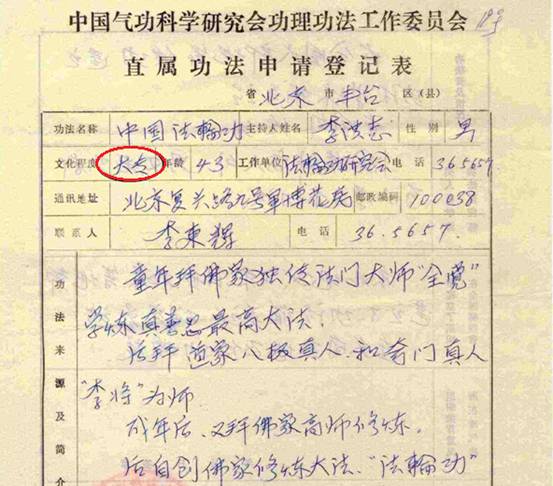 中国气功科学研究会功理功法工作委员会
直属功法申请登记表
省 北京 市 丰台 区(县)
功法名称 中国法輪功 主持人姓名 李洪志 性别 男
文化程度 大专 年龄 43 工作单位 法輪功研究会 电话 36.5657.
通讯地址 北京复兴路九号軍博花房 邮政编码 100038
联系人 李東輝 电话 36.5657.
功法来源及简介
童年拜佛家独传法门大师“全覺”
学炼真善忍最高大法.
后拜道家八极真人.和奇门真人
“李将”为师
成年后.又拜佛家高师修炼.
后自创佛家修炼大法.“法輪功”